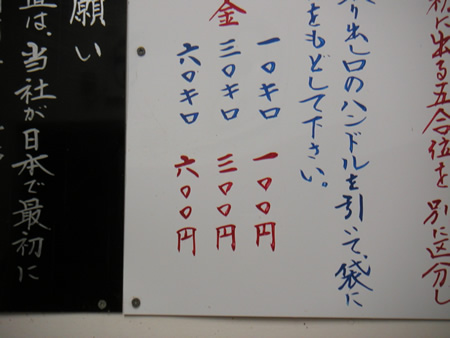 に出る五合位を別に区分し
り出し口のハンドルを引いて、袋に
をもどして下さい。
金
一〇キロ 一〇〇円
三〇キロ 三〇〇円
六〇キロ 六〇〇円
願い
は、当社が日本で最初に